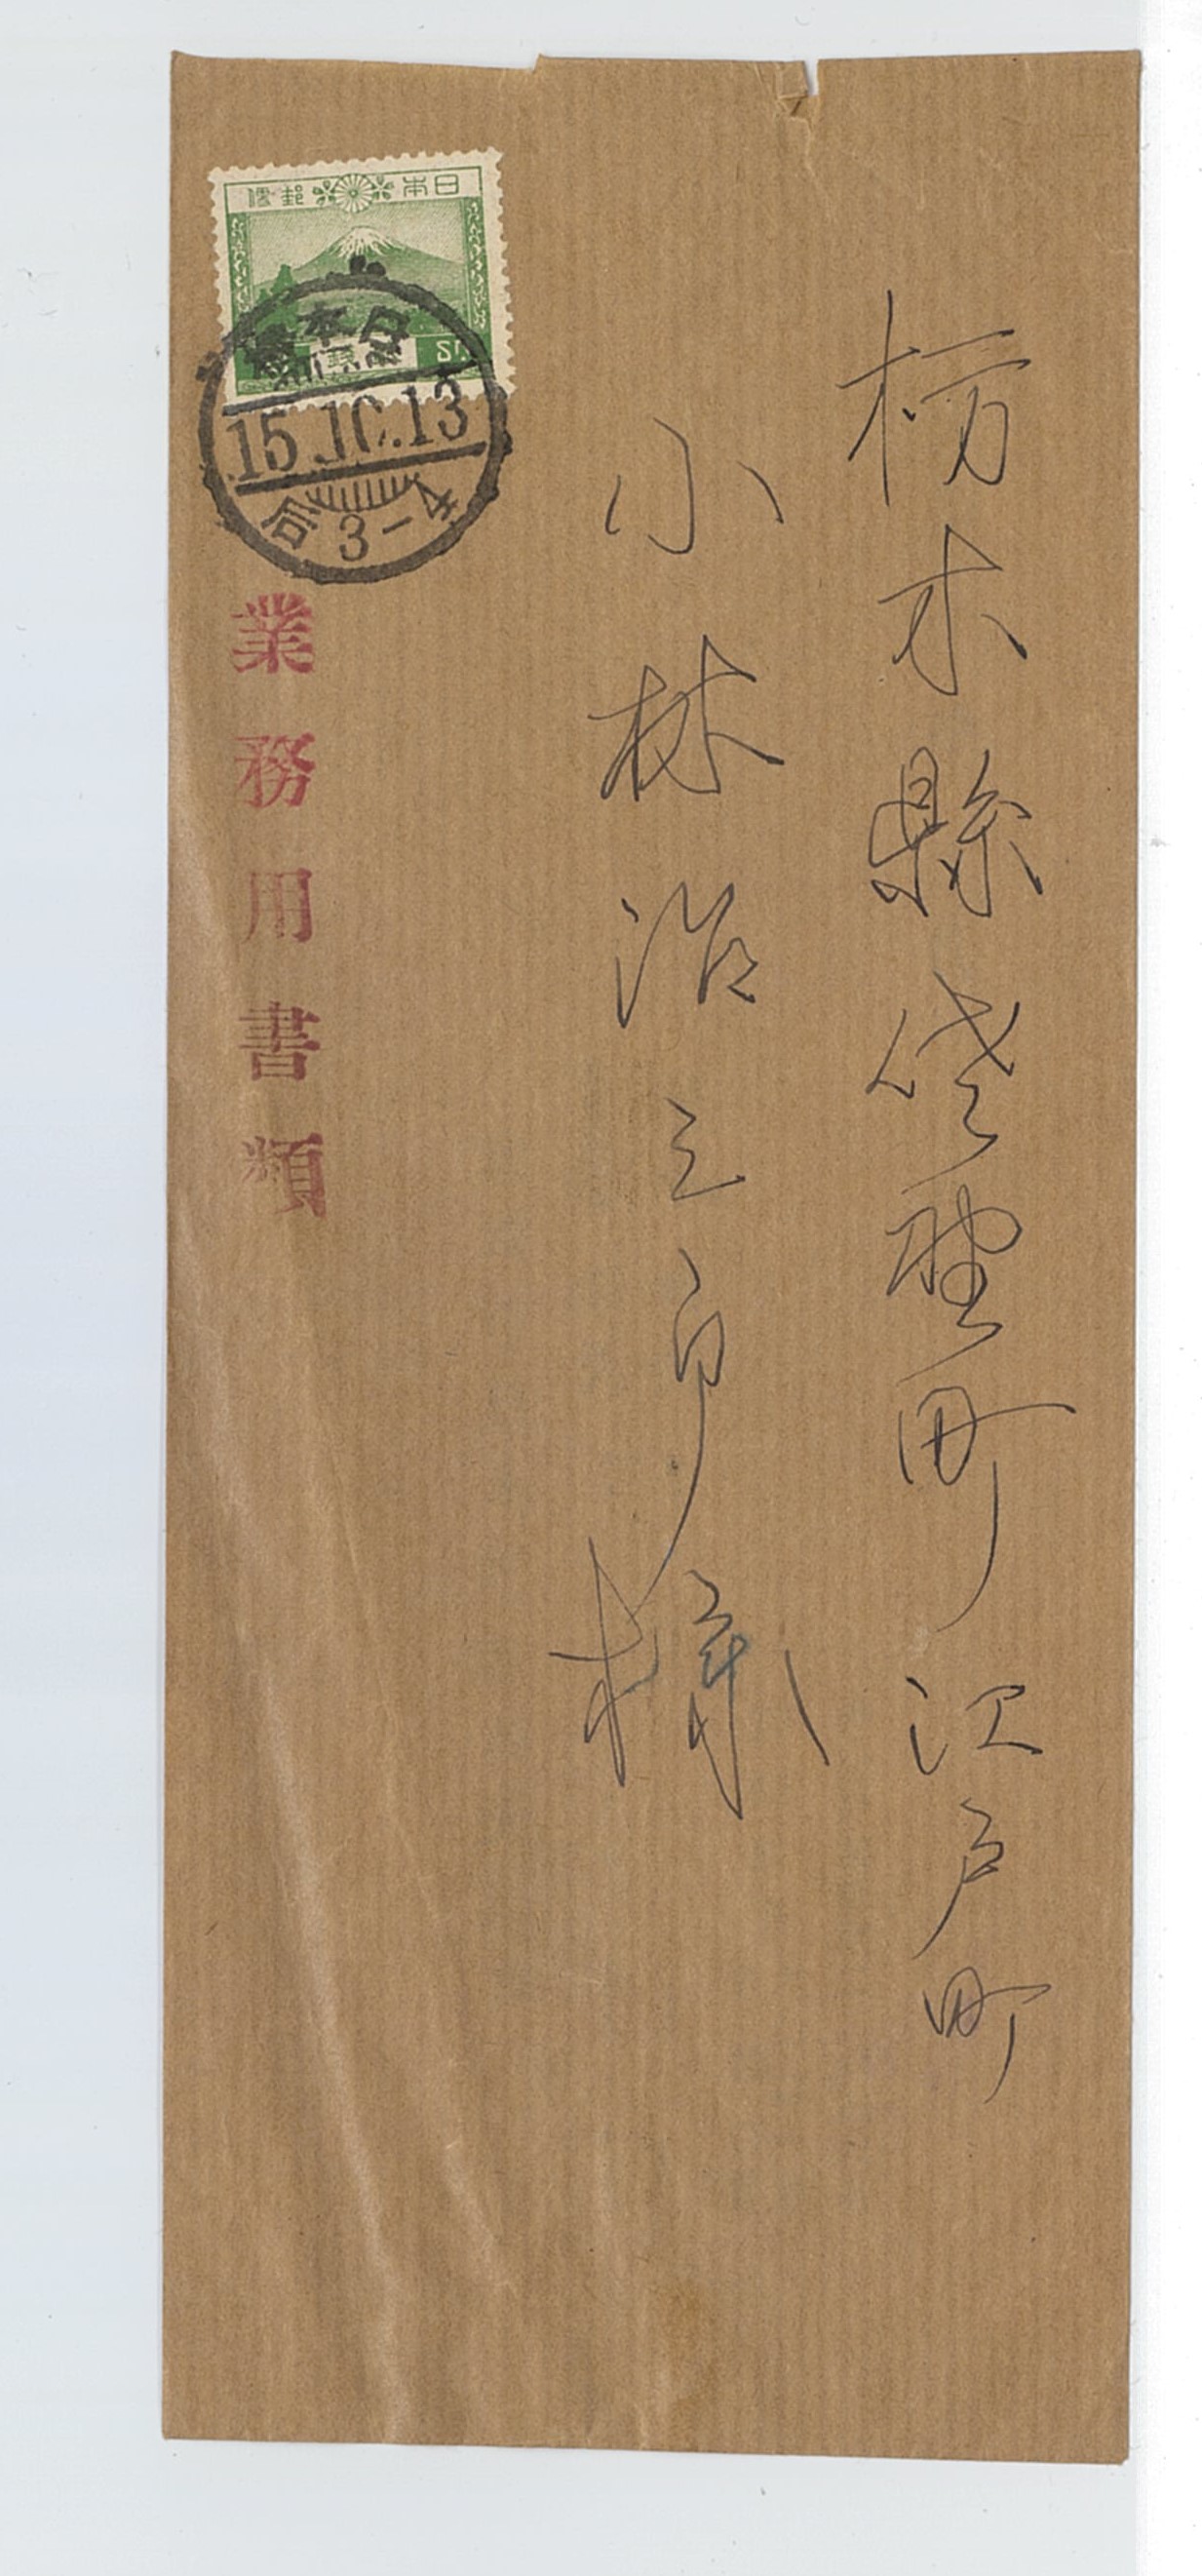 栃木縣佐野町江戸町
小林治三郎様
日本郵便
日本橋
15.10.13
3-4
業務用書類